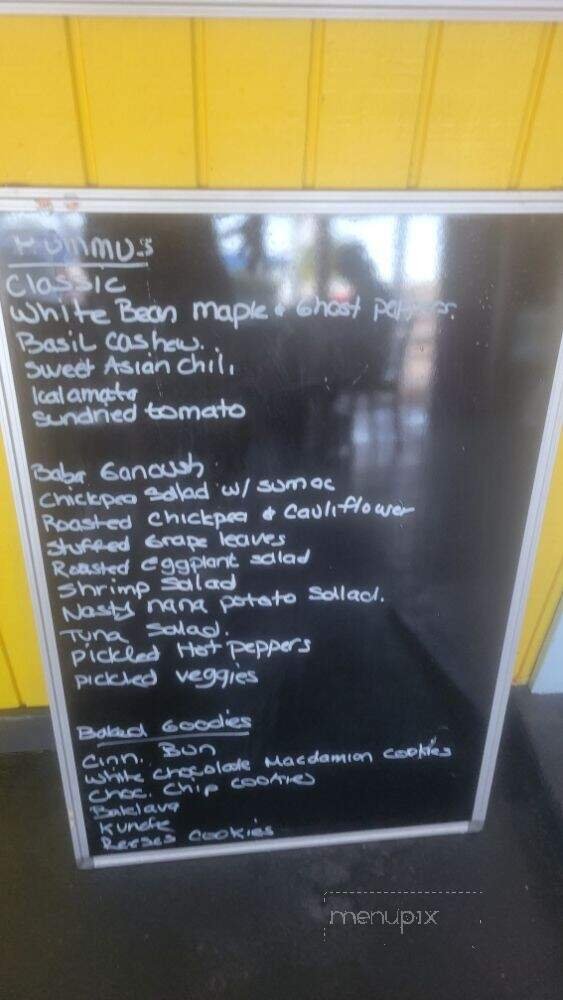 Hummus
Classic
White Bean maple & Ghost peppers
Basil cashew.
Sweet Asian chili
kalamata
sundried tomato
Baba Ganoush
Chickpea Salad w/ sumac
Roasted chickpea & Cauliflower
Stuffed Grape leaves
Roasted Eggplant salad
Shrimp Salad
Nasty nana potato Sallad.
Tuna Salad.
pickled Hot peppers
pickled veggies
Baked Goodies
Cinn. Bun
White chocolate Macdamion cookies
Choc. Chip cookies
Baklava
Reeses cookies
menupix